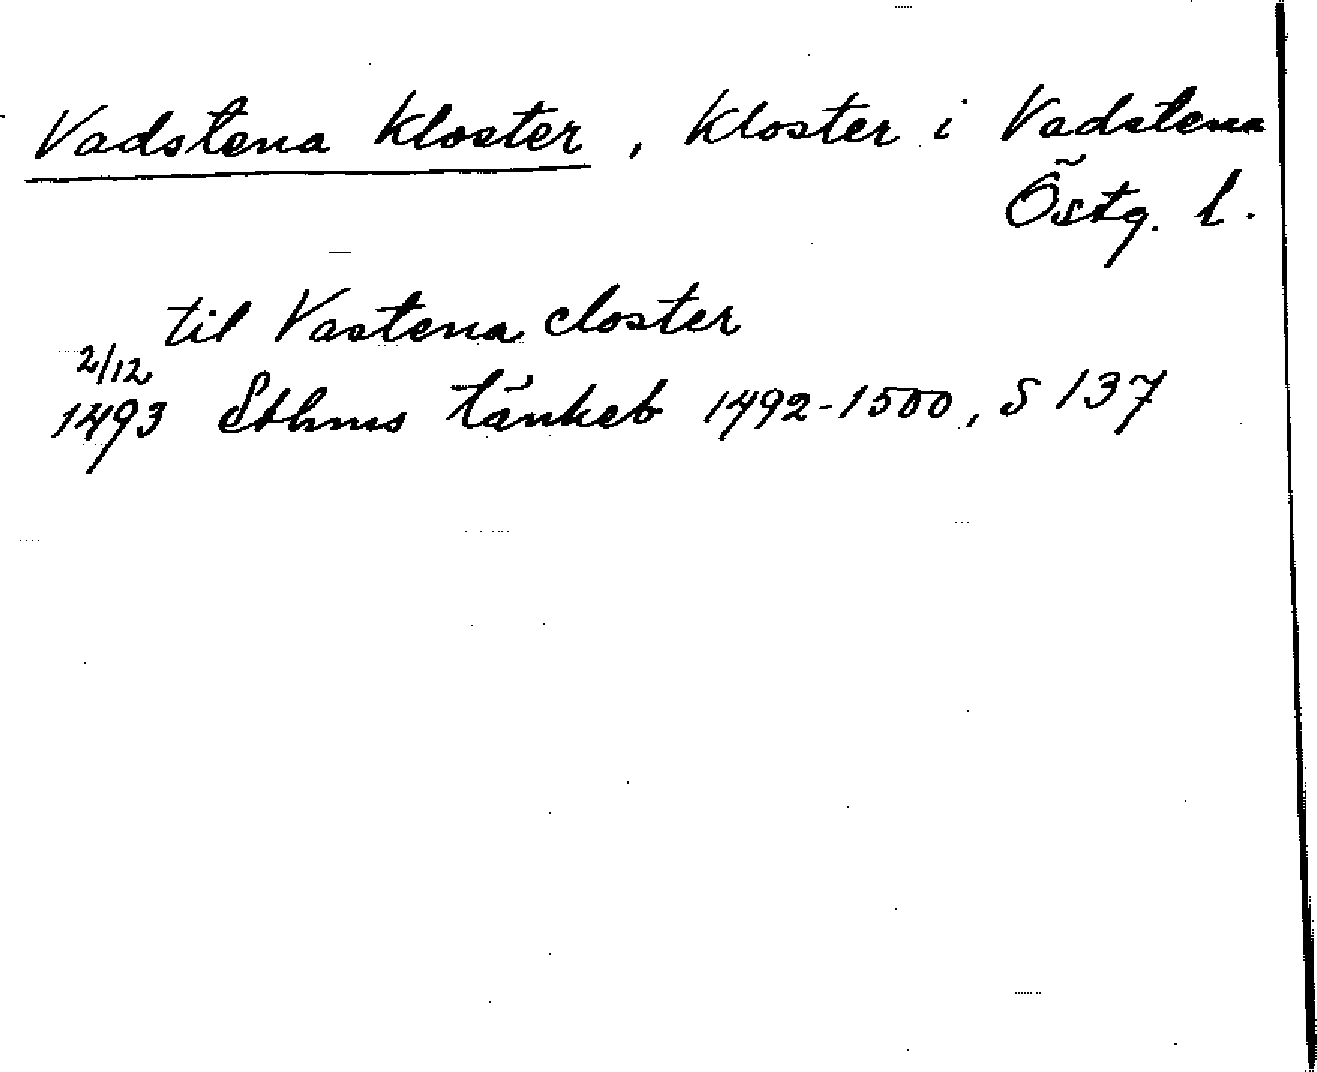 Vadstena Kloster, Kloster i Vadstena
Östg. l.
til Vastena closter
2/12
1493 Sthms tänkeb 1492-1500, S 137